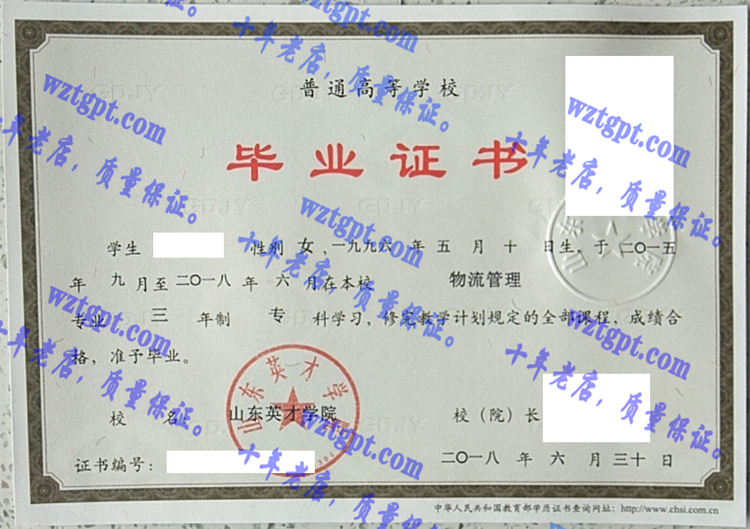 普通高等学校
毕业证书
学生 性别 女，一九九六 年 五 月 十 日生，于 二〇一五
年 九 月至 二〇一八 年 六 月在本校 物流管理
专业 三 年制 专 科学习，修完教学计划规定的全部课程，成绩合
格，准予毕业。
校 名： 山东英才学院 校（院）长
证书编号： 二〇一八 年 六 月 三十 日
中华人民共和国教育部学历证书查询网址：http://www.chsi.com.cn
山东英才学院
wztgpt.com
十年老店，质量保证。
wztgpt.com
十年老店，质量保证。
wztgpt.com
十年老店，质量保证。
wztgpt.com
十年老店，质量保证。
wztgpt.com
十年老店，质量保证。
wztgpt.com
十年老店，质量保证。
wztgpt.com
十年老店，质量保证。